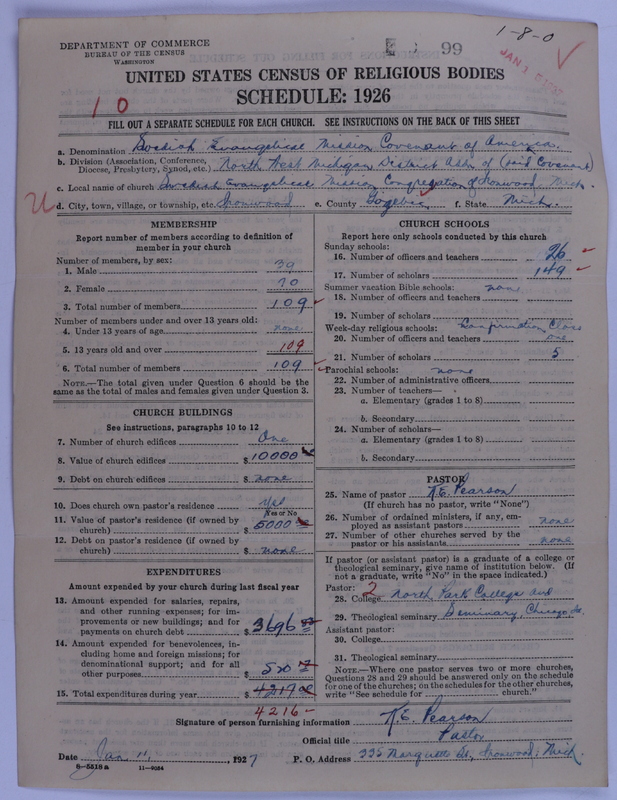 1-8-0
DEPARTMENT OF COMMERCE
BUREAU OF THE CENSUS
WASHINGTON
99
UNITED STATES CENSUS OF RELIGIOUS BODIES
SCHEDULE: 1926
10
FILL OUT A SEPARATE SCHEDULE FOR EACH CHURCH. SEE INSTRUCTIONS ON THE BACK OF THIS SHEET
a. Denomination Swedish Evangelical Mission Covenant of America.
b. Division (Association, Conference, Diocese, Presbytery, Synod, etc.) North West Michigan District Assn. of (said Covenant)
c. Local name of church Swedish Evangelical Mission Congregation of Ironwood, Mich.
d. City, town, village, or township, etc. Ironwood e. County Gogebic f. State Mich.
MEMBERSHIP
Report number of members according to definition of member in your church
Number of members, by sex:
1. Male 39
2. Female 70
3. Total number of members 109
Number of members under and over 13 years old:
4. Under 13 years of age none
5. 13 years old and over 109
6. Total number of members 109
NOTE.—The total given under Question 6 should be the same as the total of males and females given under Question 3.
CHURCH BUILDINGS
See instructions, paragraphs 10 to 12
7. Number of church edifices One
8. Value of church edifices $ 10000
9. Debt on church edifices $ none
10. Does church own pastor's residence yes
Yes or No
11. Value of pastor's residence (if owned by church) $ 5000
12. Debt on pastor's residence (if owned by church) $ none
EXPENDITURES
Amount expended by your church during last fiscal year
13. Amount expended for salaries, repairs, and other running expenses; for improvements or new buildings; and for payments on church debt $ 3696
14. Amount expended for benevolences, including home and foreign missions; for denominational support; and for all other purposes $ 520
15. Total expenditures during year $ 4217
4216-
CHURCH SCHOOLS
Report here only schools conducted by this church
Sunday schools:
16. Number of officers and teachers 26
17. Number of scholars 149
Summer vacation Bible schools: none
18. Number of officers and teachers
19. Number of scholars
Week-day religious schools: Confirmation Class
20. Number of officers and teachers one
21. Number of scholars 5
Parochial schools: none
22. Number of administrative officers
23. Number of teachers—
a. Elementary (grades 1 to 8)
b. Secondary
24. Number of scholars—
a. Elementary (grades 1 to 8)
b. Secondary
PASTOR
25. Name of pastor K.E. Pearson
(If church has no pastor, write "None")
26. Number of ordained ministers, if any, employed as assistant pastors none
27. Number of other churches served by the pastor or his assistants none
If pastor (or assistant pastor) is a graduate of a college or theological seminary, give name of institution below. (If not a graduate, write "No" in the space indicated.)
Pastor: 2
28. College North Park College and
29. Theological seminary Seminary, Chicago, Ill.
Assistant pastor:
30. College
31. Theological seminary
NOTE.—Where one pastor serves two or more churches, Questions 28 and 29 should be answered only on the schedule for one of the churches; on the schedules for the other churches, write "See schedule for church."
Signature of person furnishing information K.E. Pearson
Official title Pastor
Date Jan. 11, 1927 P. O. Address 335 Marquette St., Ironwood, Mich.
8-5518a 11-9084